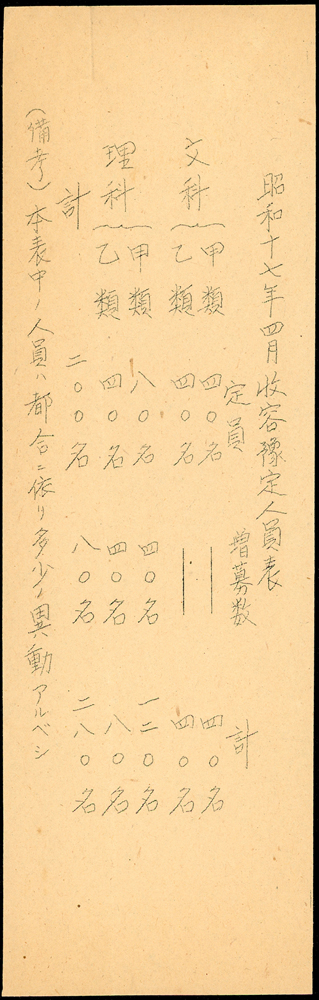 昭和十七年四月收容豫定人員表
定員 增募数 計
文科 甲類 四〇名 ― 四〇名
乙類 四〇名 ― 四〇名
理科 甲類 八〇名 四〇名 一二〇名
乙類 四〇名 四〇名 八〇名
計 二〇〇名 八〇名 二八〇名
(備考)本表中ノ人員ハ都合ニ依リ多少ノ異動アルベシ